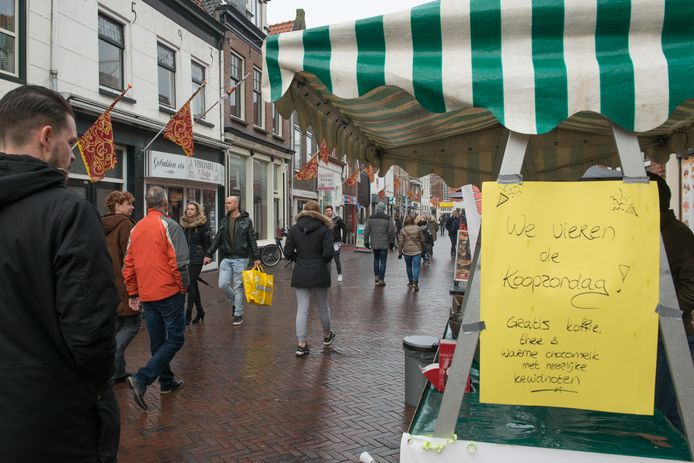 We vieren
de
Koopzondag!
Gratis koffie,
thee &
warme chocomelk
met heerlijke
kruidnoten
VISHANDEL